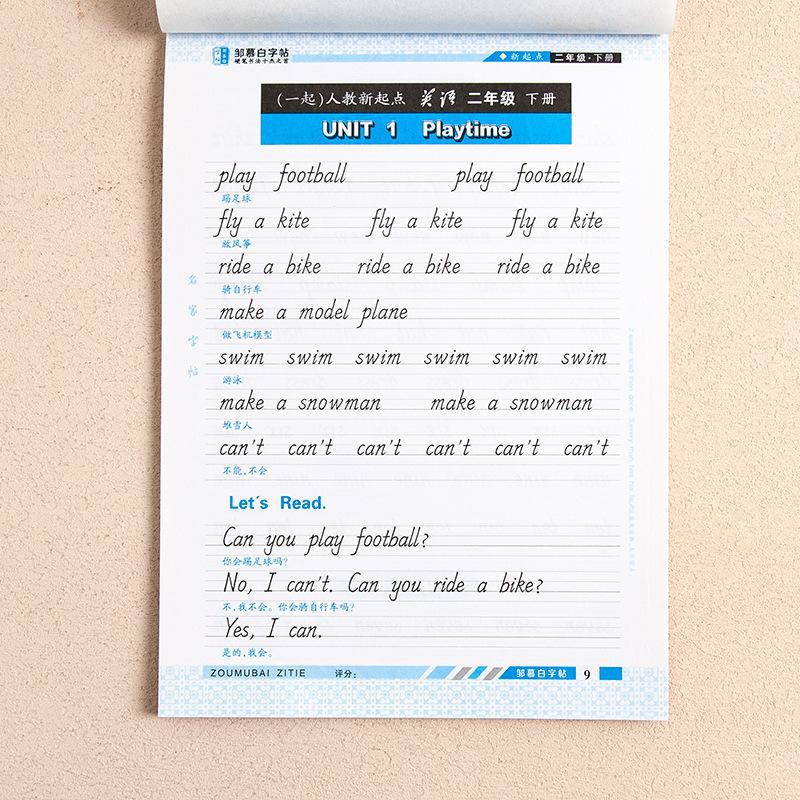 邹慕白字帖
硬笔书法十杰之首
新起点 二年级·下册
(一起)人教新起点 英语 二年级 下册
UNIT 1 Playtime
play football play football
踢足球
fly a kite fly a kite fly a kite
放风筝
ride a bike ride a bike ride a bike
骑自行车
make a model plane
做飞机模型
swim swim swim swim swim swim
游泳
make a snowman make a snowman
堆雪人
can't can't can't can't can't can't
不能,不会
名家字帖
Let's Read.
Can you play football?
你会踢足球吗?
No, I can't. Can you ride a bike?
不,我不会。你会骑自行车吗?
Yes, I can.
是的,我会。
ZOUMUBAI ZITIE 评分: 邹慕白字帖 9